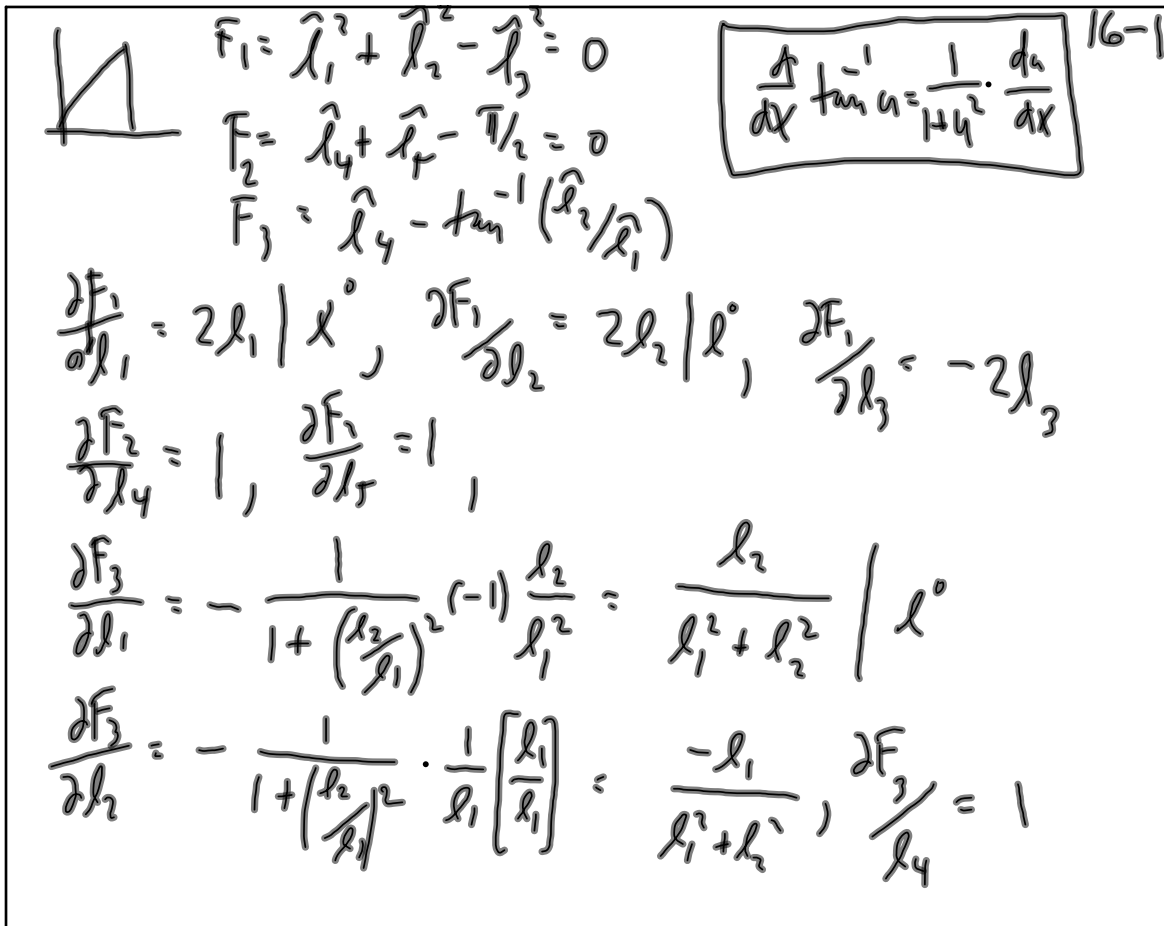 16-1
F₁ = l̂₁² + l̂₂² - l̂₃² = 0
d/dx tan⁻¹ u = 1/(1+u²) · du/dx
F₂ = l̂₄ + l̂₅ - π/2 = 0
F₃ = l̂₄ - tan⁻¹(l̂₂/l̂₁)
∂F₁/∂l₁ = 2l₁ | l°, ∂F₁/∂l₂ = 2l₂ | l°, ∂F₁/∂l₃ = -2l₃
∂F₂/∂l₄ = 1, ∂F₁/∂l₅ = 1,
∂F₃/∂l₁ = - 1/(1 + (l₂/l₁)²) (-1) l₂/l₁² = l₂/(l₁² + l₂²) | l°
∂F₃/∂l₂ = - 1/(1 + (l₂/l₁)²) · 1/l₁ [l₁/l₁] = -l₁/(l₁² + l₂²), ∂F₃/l₄ = 1